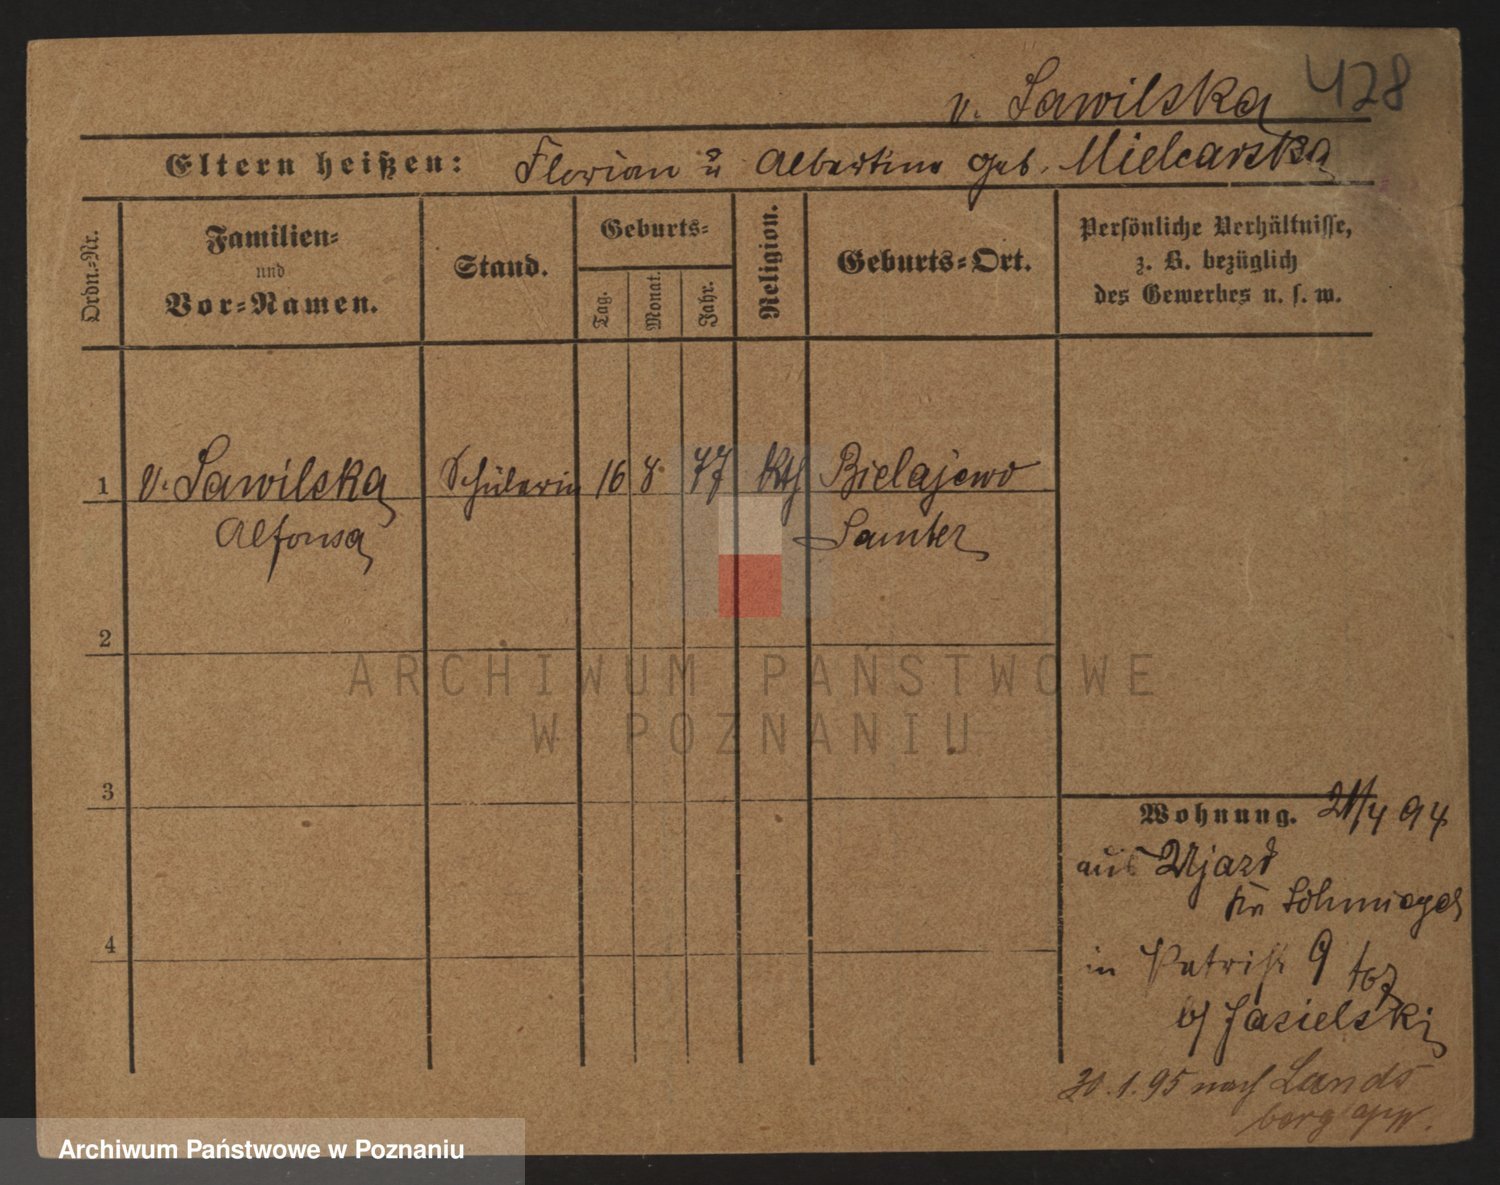 v. Sawilska 428
Eltern heißen: Florian u Albertine geb. Mielcarska
Ordn.-Nr.
Familien-
und
Vor-Namen.
Stand.
Geburts-
Tag.
Monat.
Jahr.
Religion.
Geburts-Ort.
Persönliche Verhältnisse,
z. B. bezüglich
des Gewerbes u. s. w.
1 v. Sawilska Schülerin 16 8 77 kth Bielajewo
Alfonsa Samter
2
3
4
Wohnung. 21/4 94
aus Ujazd
Kr Schmiegel
in Patrik 9
b/ Jasielski
30.1.95 nach Lands
berg
ARCHIWUM PAŃSTWOWE
W POZNANIU
Archiwum Państwowe w Poznaniu